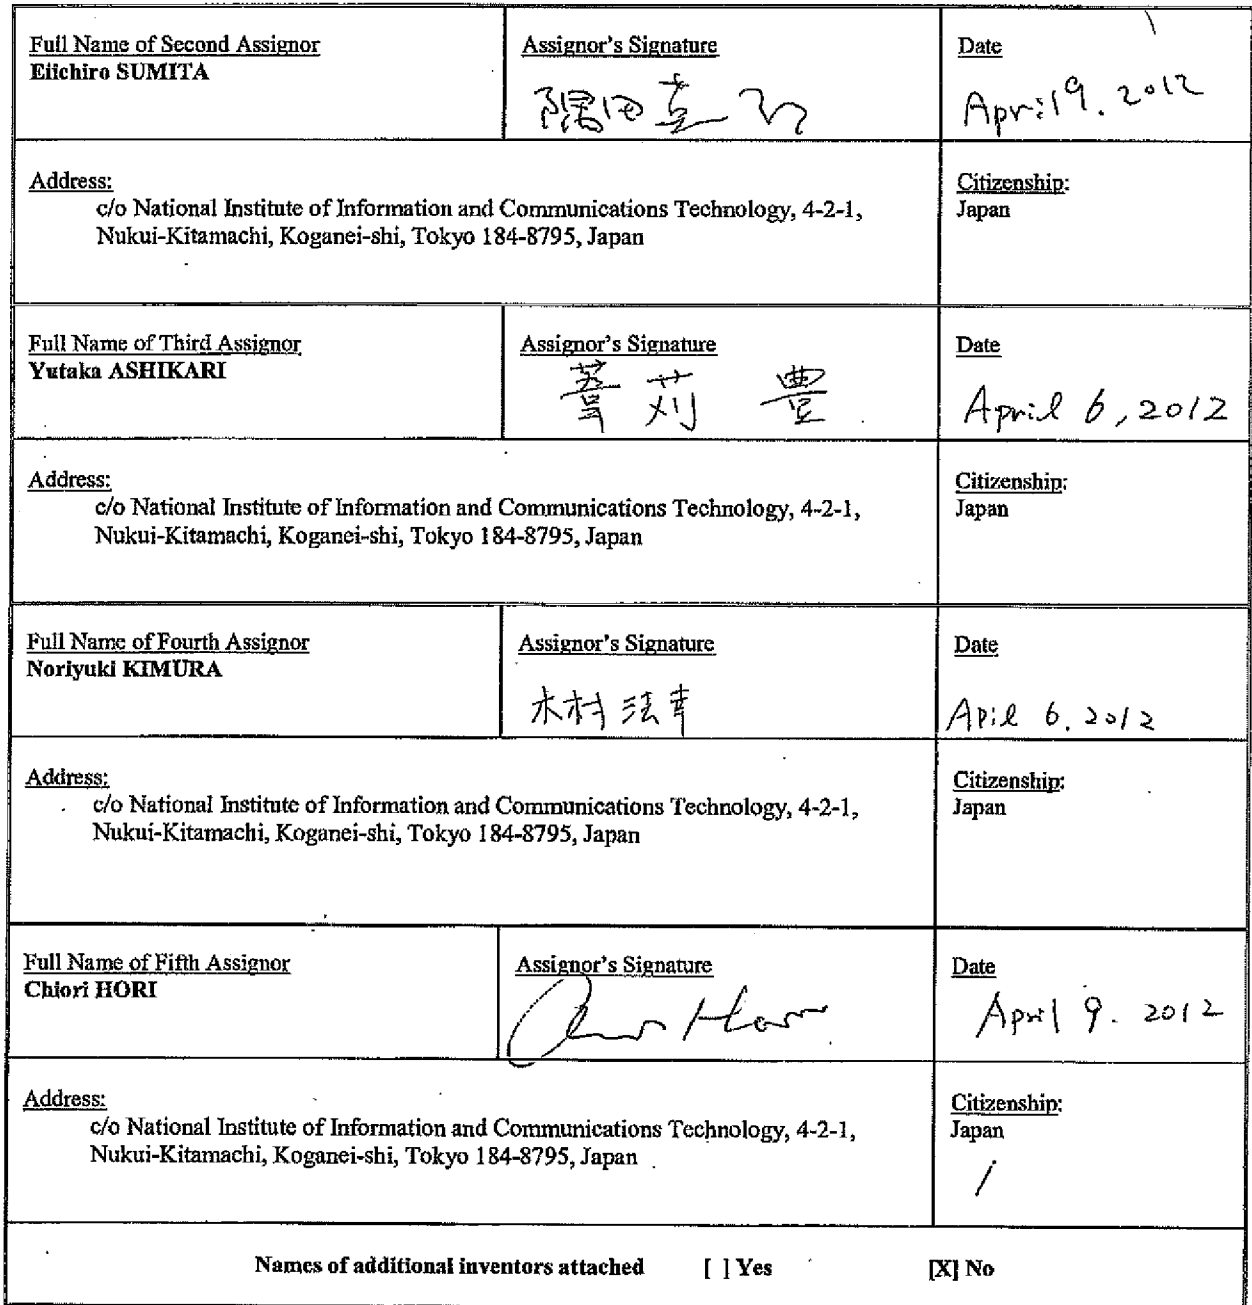 Full Name of Second Assignor
Eiichiro SUMITA
Assignor's Signature
隅田英一郎
Date
April 9. 2012
Address:
c/o National Institute of Information and Communications Technology, 4-2-1,
Nukui-Kitamachi, Koganei-shi, Tokyo 184-8795, Japan
Citizenship:
Japan
Full Name of Third Assignor
Yutaka ASHIKARI
Assignor's Signature
葦苅 豊
Date
April 6, 2012
Address:
c/o National Institute of Information and Communications Technology, 4-2-1,
Nukui-Kitamachi, Koganei-shi, Tokyo 184-8795, Japan
Citizenship:
Japan
Full Name of Fourth Assignor
Noriyuki KIMURA
Assignor's Signature
木村法幸
Date
Apil 6. 2012
Address:
c/o National Institute of Information and Communications Technology, 4-2-1,
Nukui-Kitamachi, Koganei-shi, Tokyo 184-8795, Japan
Citizenship:
Japan
Full Name of Fifth Assignor
Chiori HORI
Assignor's Signature
Date
April 9. 2012
Address:
c/o National Institute of Information and Communications Technology, 4-2-1,
Nukui-Kitamachi, Koganei-shi, Tokyo 184-8795, Japan
Citizenship:
Japan
Names of additional inventors attached [ ] Yes [X] No